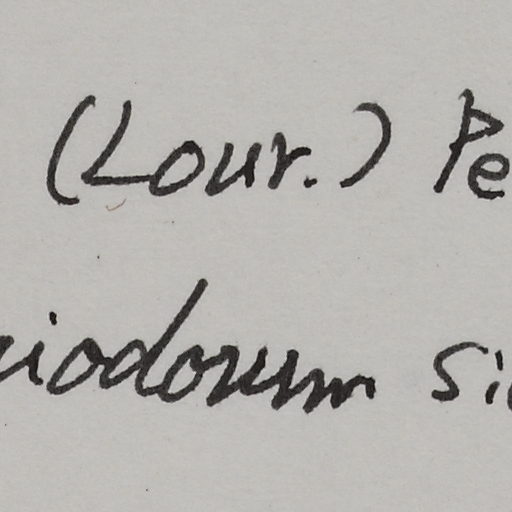 (Lour.) Pe
iodorum si